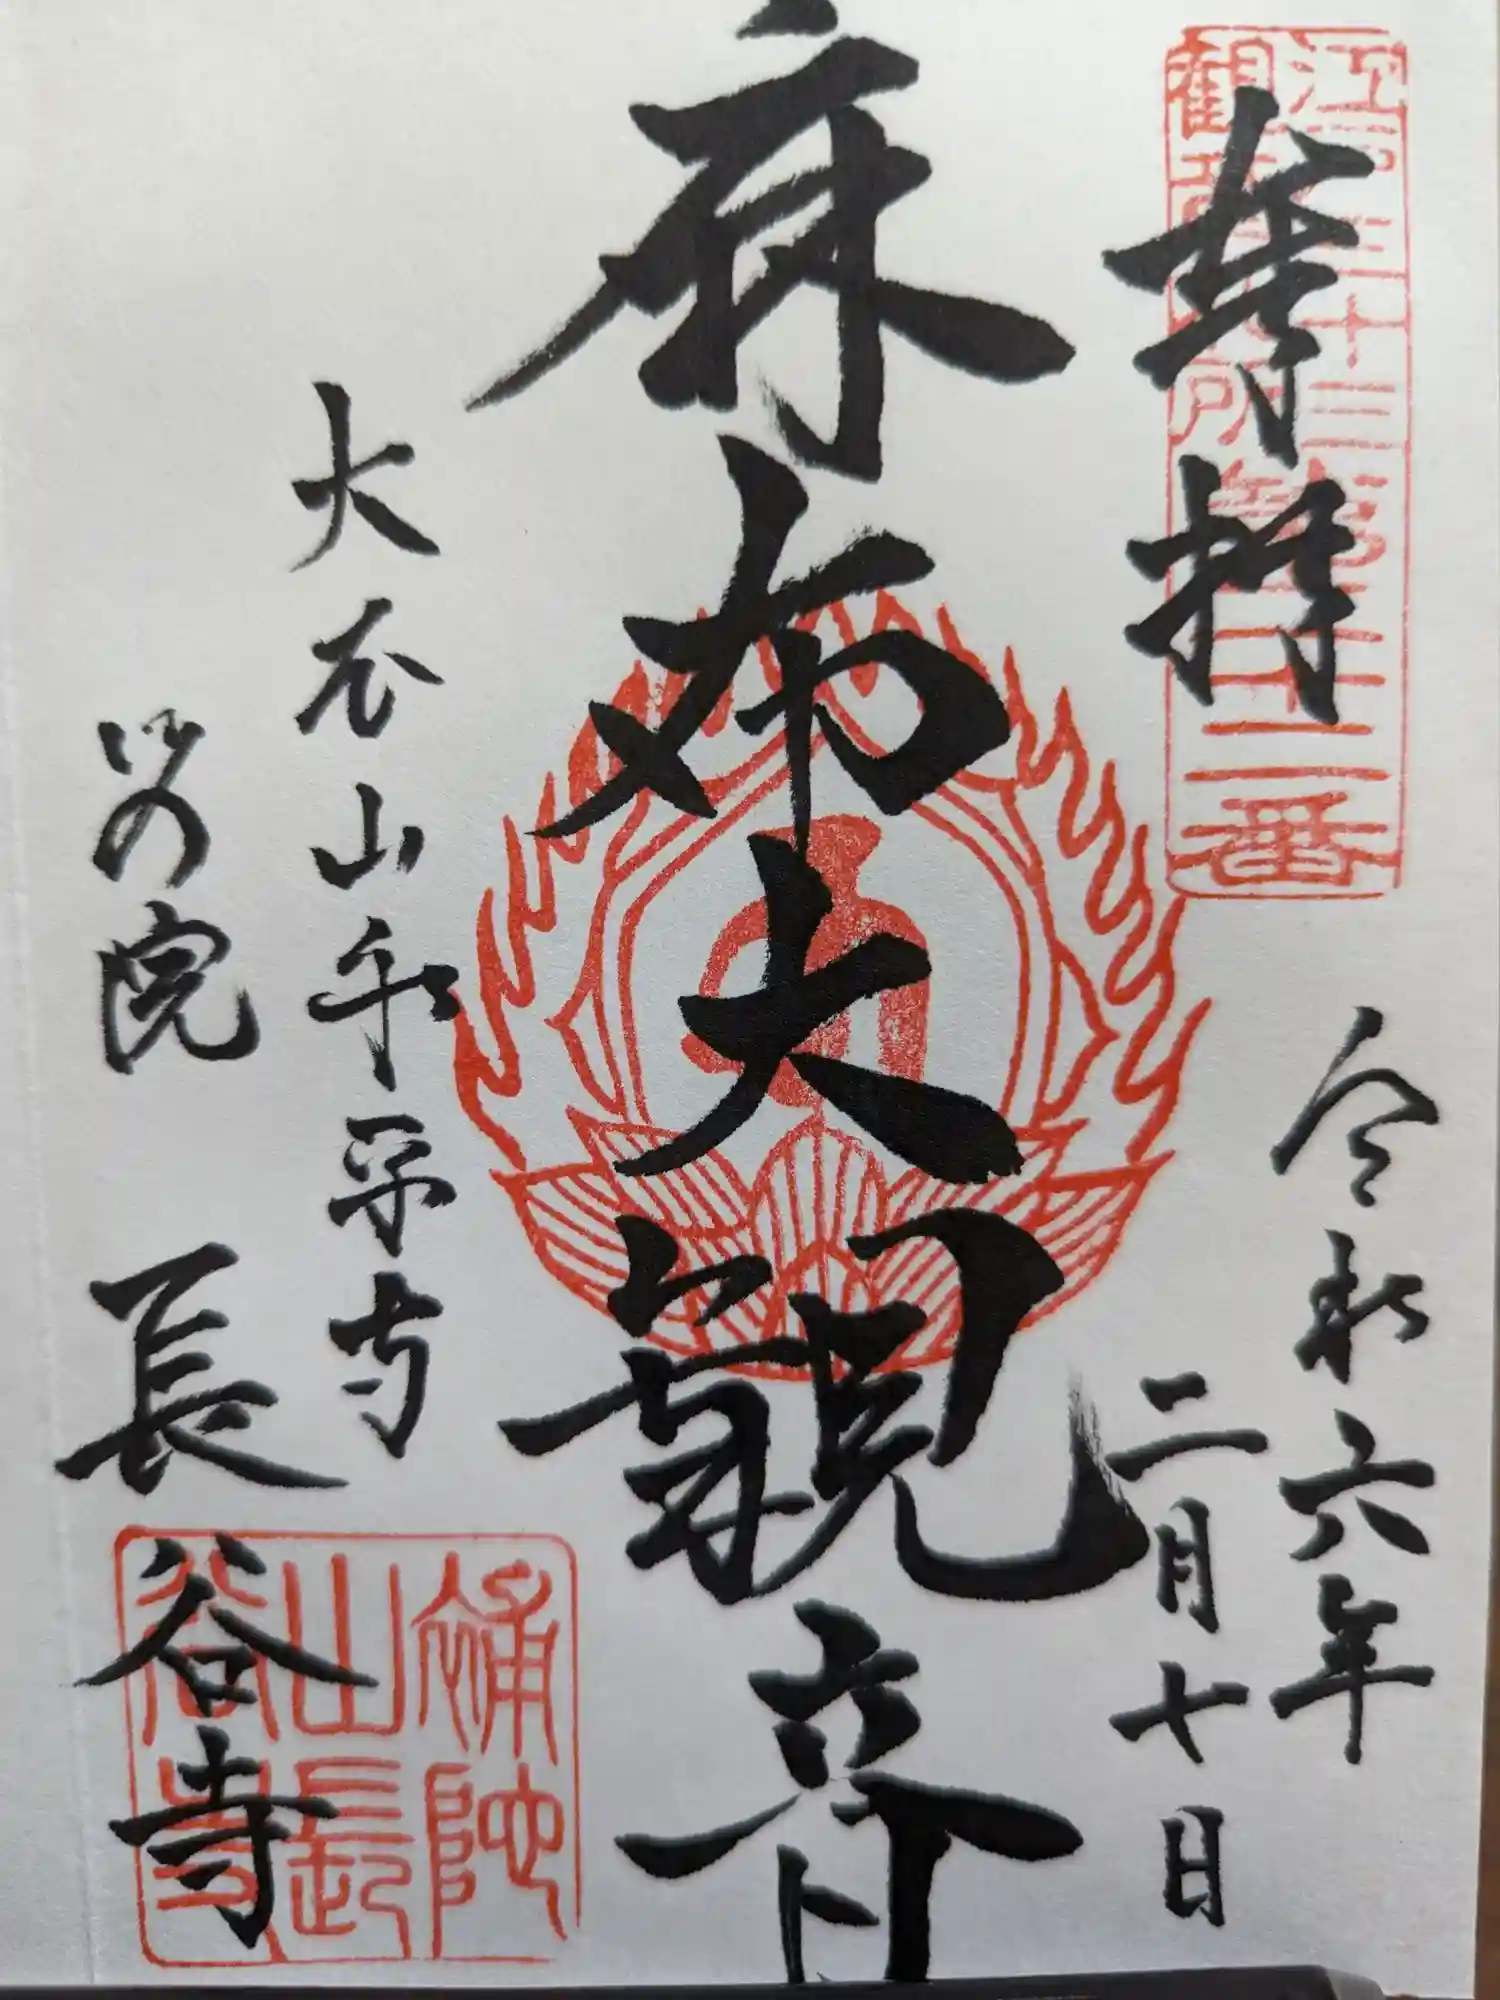 奉拝
江戸三十三
観音札所
第二十二番
令和六年
二月七日
麻布大観音
大本山永平寺
別院
長谷寺
補陀
山長
谷寺